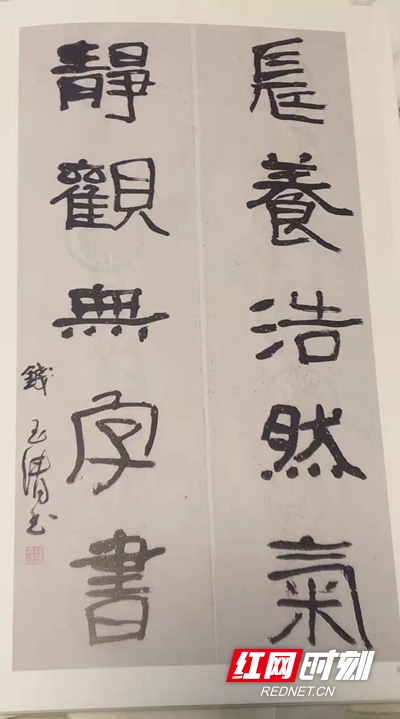 長養浩然氣
靜觀無字書
錢玉清书
红网时刻
REDNET.CN